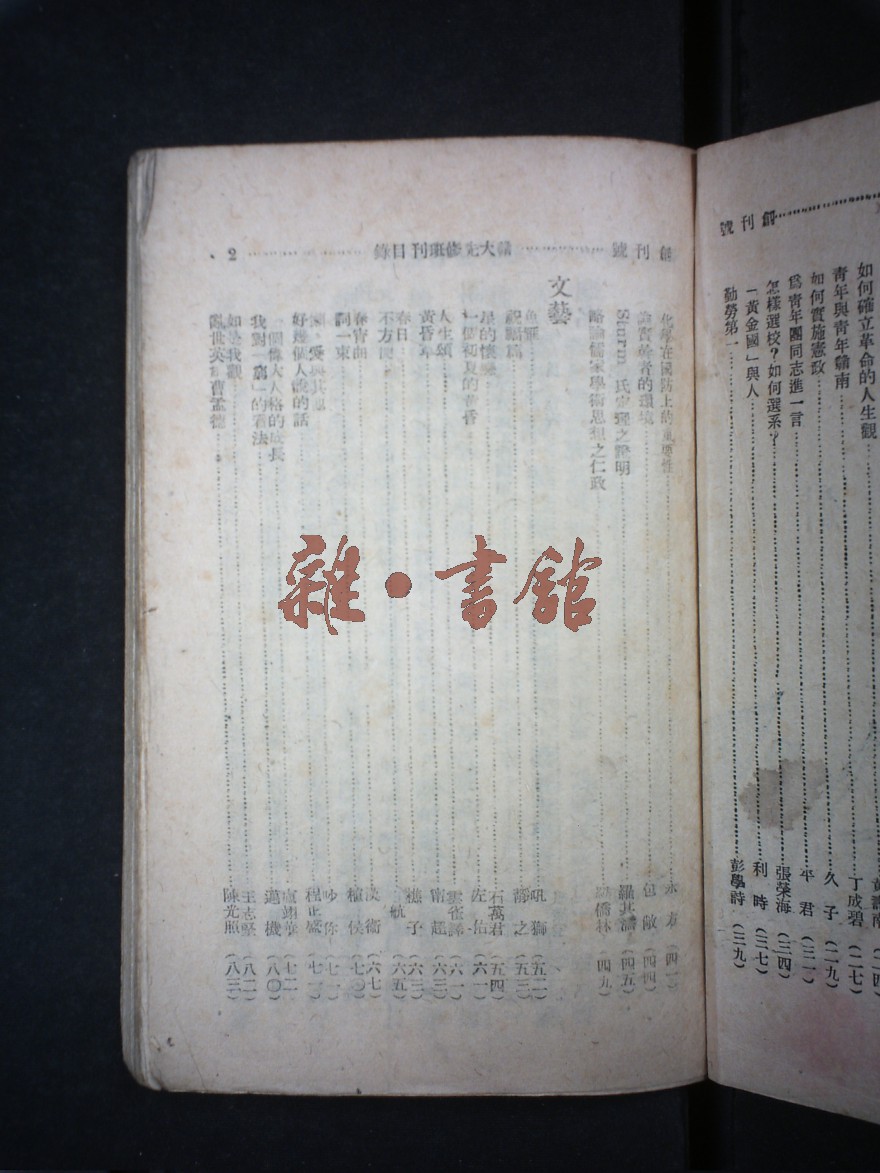 創刊號
如何確立革命的人生觀
青年與青年贛南 丁成碧(二七)
如何實施憲政 久子(二九)
為青年團同志進一言 平君(三一)
怎樣選校?如何選系? 張榮海(三四)
「黃金國」與人 利時(三七)
勤勞第一 彭學詩(三九)
創刊號 贛大先修班刊目錄 2
化學在國防上的重要性 (四一)
論實業者的環境 包敵(四四)
Sturm 氏定理之證明 羅兆濤(四五)
略論儒家學術思想之仁政 僑林(四九)
文藝
魚 吼獅(五二)
靜之(五三)
星的懷 石萬君(五四)
一個初夏的黃昏 左佑(六一)
人生頌 雲雀譯(六一)
黃昏 甯超(六三)
春日 樵子(六三)
不方便 航(六五)
春宵曲 漢衛(六七)
詞一束 穉侯(七〇)
愛與 吵你(七一)
好幾個人說的話 程正盛(七一)
一個偉大人格的成長 盧翊華(七二)
我對「窮」的看法 邁機(八〇)
如是我觀 王志堅(八二)
亂世英雄曹孟德 陳光照(八三)
雜·書館